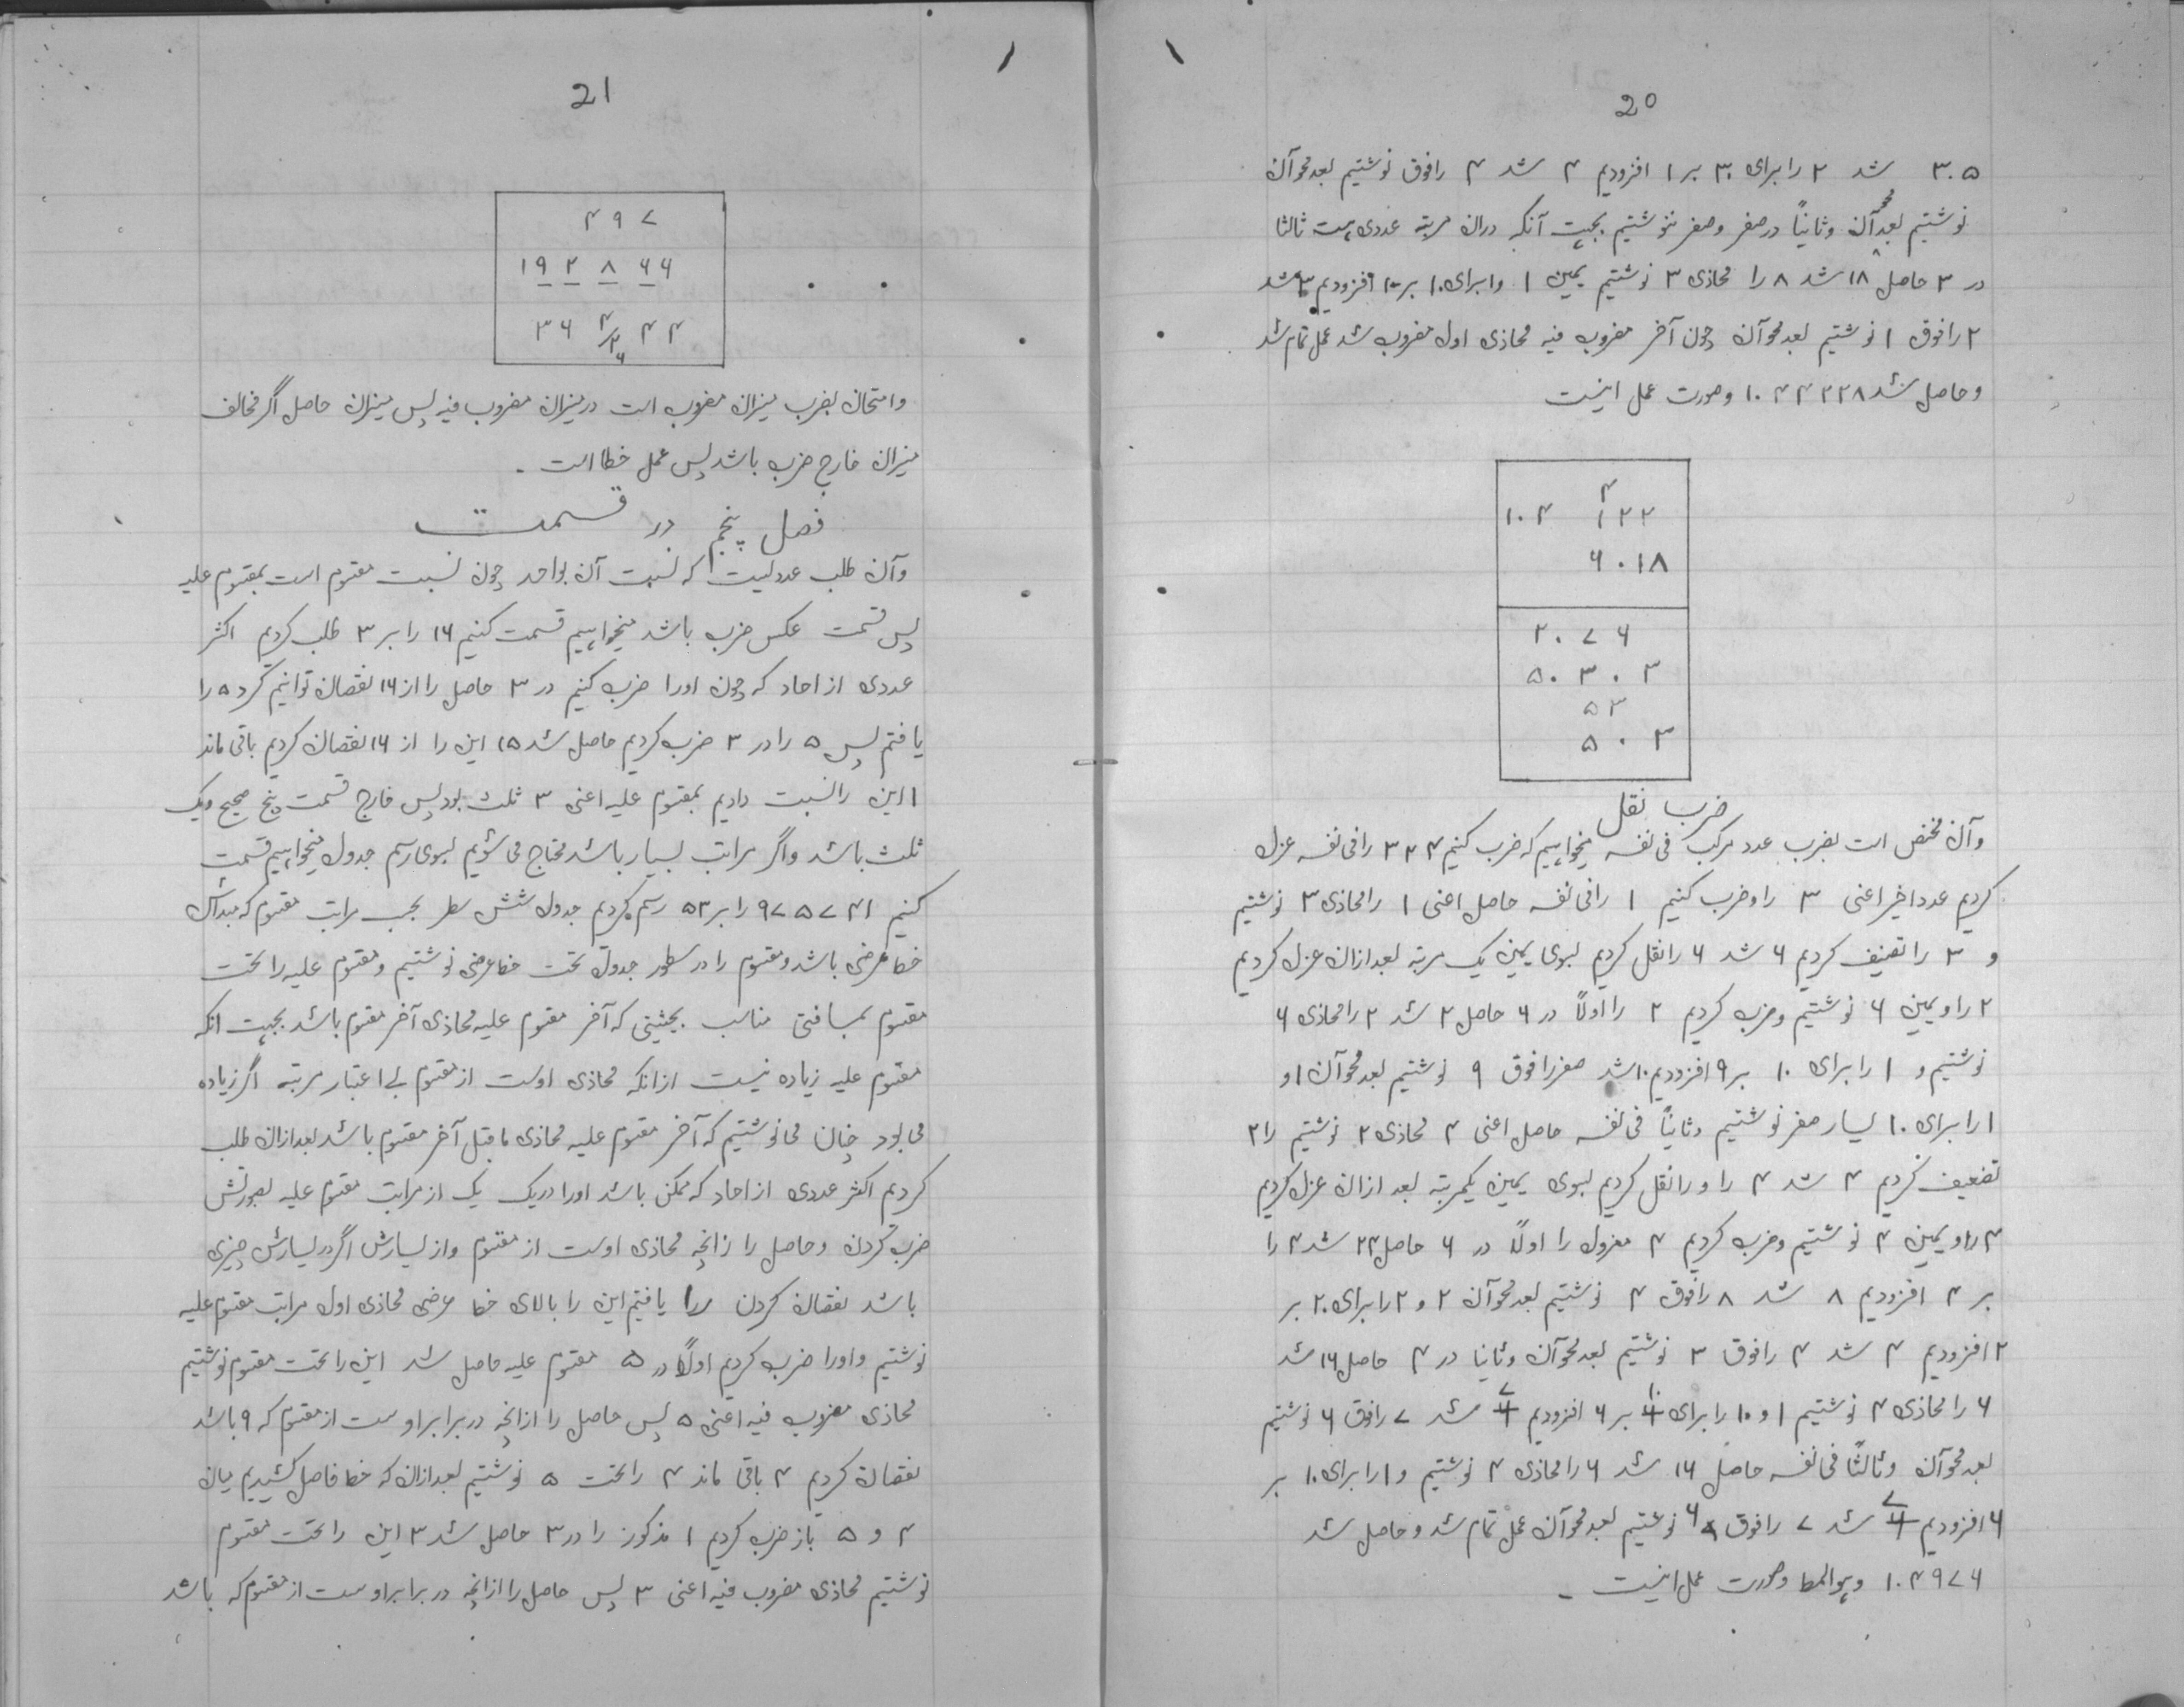 20
۳۰۵ شد ۲ را برای ۳۰ بر ۱ افزودیم ۴ شد ۴ را فوق نوشتیم بعد محو آن
نوشتیم بعد محو آن وثانیاً در صفر و صفر ننوشتیم بجهت آنکه دران مرتبه عددی هست ثالثا
در ۳ حاصل ۱۸ شد ۸ را محاذی ۳ نوشتیم یمین ۱ و ا برای ۱۰ بر ۱۰ افزودیم ۲ شد
۲ را فوق ۱ نوشتیم بعد محو آن چون آخر مضروب فیه محاذی اول مضروب شد عمل تمام شد
و حاصل شد ۱۰۴۴۲۲۸ وصورت عمل اینست
۴
۱۰۴ ۱۲۲
۶۰۱۸
۲۰۷۶
۵۰۳۰۳
۵۳
۵۰۳
ضرب نقل
وآن مختص است بضرب عدد مرکب فی نفسه میخواهیم که ضرب کنیم ۳۲۴ را فی نفسه عزل
کردیم عدد اخیر اعنی ۳ را وضرب کنیم ۱ را فی نفسه حاصل اعنی ۱ را محاذی ۳ نوشتیم
و ۳ را تضیف کردیم ۶ شد ۶ را نقل کردیم بسوی یمین یک مرتبه بعد ازان عزل کردیم
۲ را و یمین ۶ نوشتیم وضرب کردیم ۲ را اولاً در ۶ حاصل ۲ شد ۲ را محاذی ۶
نوشتیم و ۱ را برای ۱۰ بر ۹ افزودیم ۱۰ شد صفر را فوق ۹ نوشتیم بعد محو آن ا و
۱ را برای ۱۰ یسار صفر نوشتیم وثانیاً فی نفسه حاصل اعنی ۴ محاذی ۲ نوشتیم را ۲
تضعیف کردیم ۴ شد ۴ را و را نقل کردیم بسوی یمین یکمرتبه بعد ازان عزل کردیم
۴ را و یمین ۴ نوشتیم وضرب کردیم ۴ معزول را اولاً در ۶ حاصل ۲۴ شد ۴ را
بر ۴ افزودیم ۸ شد ۸ را فوق ۴ نوشتیم بعد محو آن ۲ و ۲ را برای ۲۰ بر
۲ افزودیم ۴ شد ۴ را فوق ۳ نوشتیم بعد محو آن وثانیا در ۴ حاصل ۱۶ شد
۶ را محاذی ۴ نوشتیم ۱ و ۱۰ را برای ۱۰ بر ۶ افزودیم ۷ شد ۷ را فوق ۶ نوشتیم
بعد محو آن وثالثاً فی نفسه حاصل ۱۶ شد ۶ را محاذی ۴ نوشتیم و ا را برای ۱۰ بر
۶ افزودیم ۷ شد ۷ را فوق ۶ نوشتیم بعد محو آن عمل تمام شد و حاصل شد
۱۰۴۹۷۶ وهو المط وصورت عمل اینست ـ
21
۴۹۷
۱۹۲۸۶۶
۳۶ ۴ ۴۴
۲
۶
وامتحان بضرب میزان مضروب است در میزان مضروب فیه پس میزان حاصل اگر مخالف
میزان خارج ضرب باشد پس عمل خطا است ـ
فصل پنجم در قسمت
وآن طلب عددیست که نسبت آن بواحد چون نسبت مقسوم است بمقسوم علیه
پس قسمت عکس ضرب باشد میخواهیم قسمت کنیم ۱۶ را بر ۳ طلب کردیم اکثر
عددی از احاد که چون اورا ضرب کنیم در ۳ حاصل را از ۱۶ نقصان توانیم کرد ۵ را
یافتم پس ۵ را در ۳ ضرب کردیم حاصل شد ۱۵ این را از ۱۶ نقصان کردیم باقی ماند
۱ این را نسبت دادیم بمقسوم علیه اعنی ۳ ثلث بود پس خارج قسمت پنج صحیح ویک
ثلث باشد واگر مراتب بسیار باشد محتاج می شویم بسوی رسم جدول میخواهیم قسمت
کنیم ۹۷۵۷۴۱ را بر ۵۳ رسم کردیم جدول شش سطر بحسب مراتب مقسوم که مبدأش
خط عرضی باشد ومقسوم را در سطور جدول تحت خط عرضی نوشتیم ومقسوم علیه را تحت
مقسوم بمسافتی مناسب بحیثیتی که آخر مقسوم علیه محاذی آخر مقسوم باشد بجهت انکه
مقسوم علیه زیاده نیست ازانکه محاذی اوست از مقسوم بے اعتبار مرتبه اگر زیاده
می بود چنان می نوشتیم که آخر مقسوم علیه محاذی ماقبل آخر مقسوم باشد بعد ازان طلب
کردیم اکثر عددی از احاد که ممکن باشد اورا در یک یک از مراتب مقسوم علیه بصورتش
ضرب کردن وحاصل را زانچه محاذی اوست از مقسوم واز یسارش اگر در یسارش چیزی
باشد نقصان کردن ۱ را یافتیم این را بالای خط عرضی محاذی اول مراتب مقسوم علیه
نوشتیم واورا ضرب کردیم اولاً در ۵ مقسوم علیه حاصل شد این را تحت مقسوم نوشتیم
محاذی مضروب فیه اعنی ۵ پس حاصل را ازانچه در برابر اوست از مقسوم که ۹ باشد
نقصان کردیم ۴ باقی ماند ۴ را تحت ۵ نوشتیم بعد ازان که خط فاصل کشیدیم میان
۴ و ۵ باز ضرب کردیم ۱ مذکور را در ۳ حاصل شد ۳ این را تحت مقسوم
نوشتیم محاذی مضروب فیه اعنی ۳ پس حاصل را ازانچه در برابر اوست از مقسوم که باشد